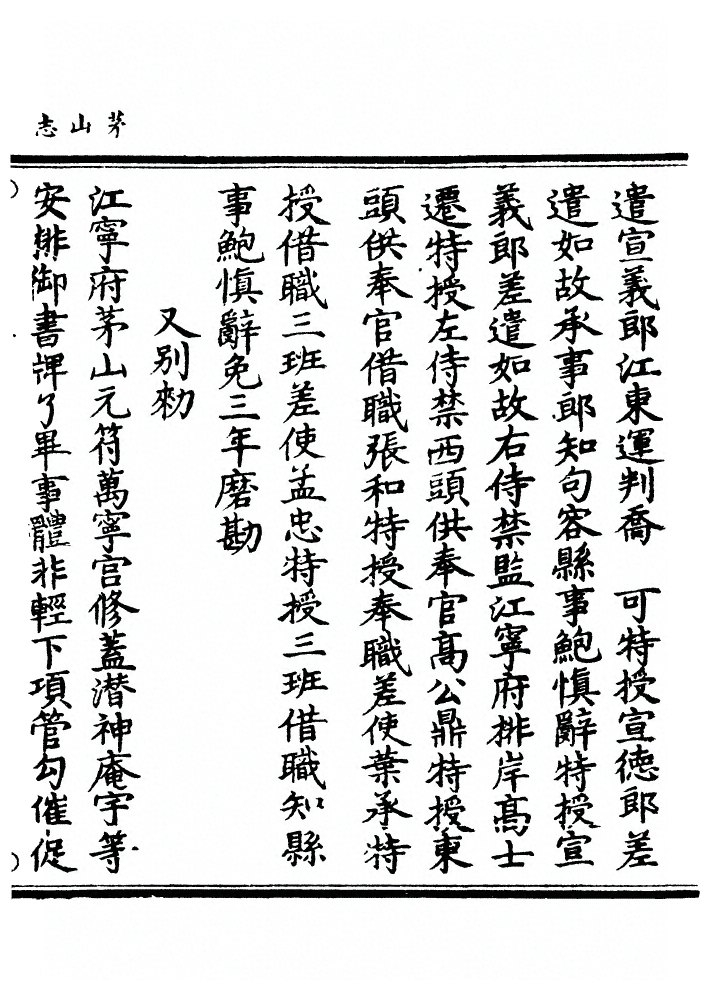 茅山志
遣宣義郎江東運判喬　可特授宣徳郎差
遣如故承事郎知句容縣事鮑慎辭特授宣
義郎差遣如故右侍禁監江寧府排岸高士
遷特授左侍禁西頭供奉官高公鼎特授東
頭供奉官借職張和特授奉職差使葉承特
授借職三班差使孟忠特授三班借職知縣
事鮑慎辭免三年磨勘
又别勑
江寧府茅山元符萬寧宮修蓋潜神庵宇等
安排御書牌了畢事體非輕下項管勾催促